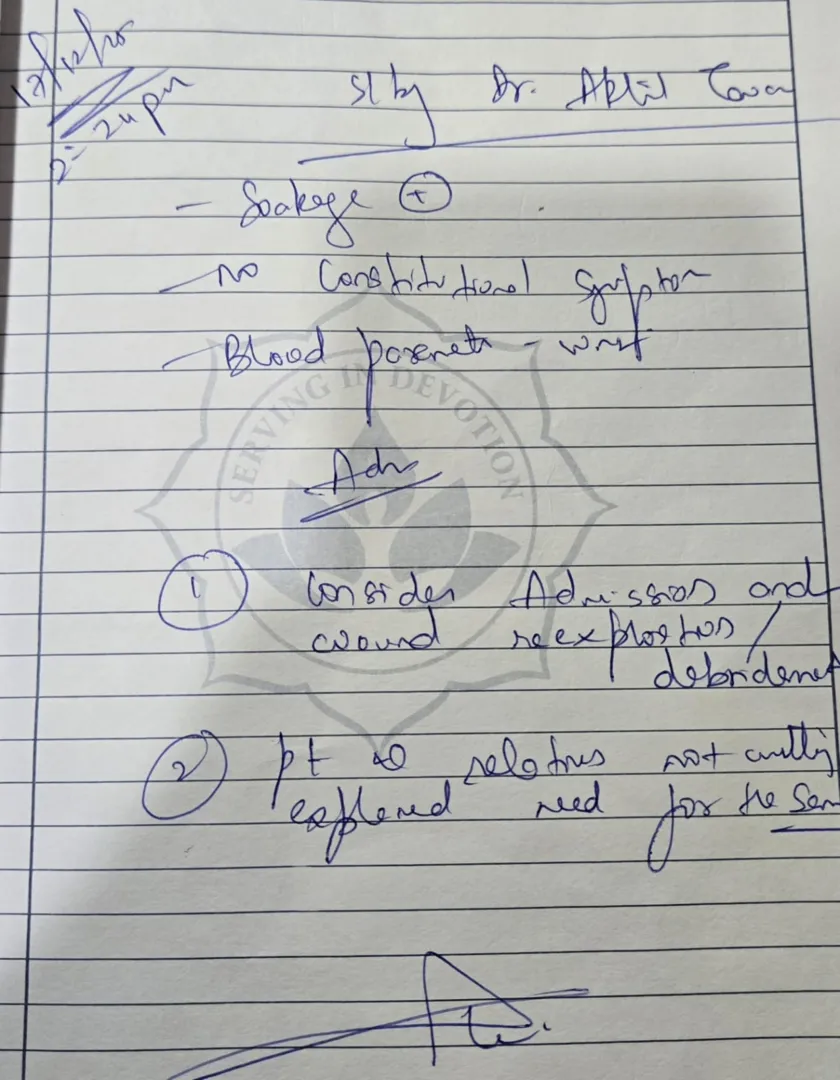 12/12/25
2:24 pm
S/by Dr. Akhil
- Soakage +
- No Constitutional Symptom
- Blood paramet - wnl
SERVING IN DEVOTION
Adv
1 Consider Admission and
wound reexploration /
debridement
2 pt & relatives not willing
explained need for the same